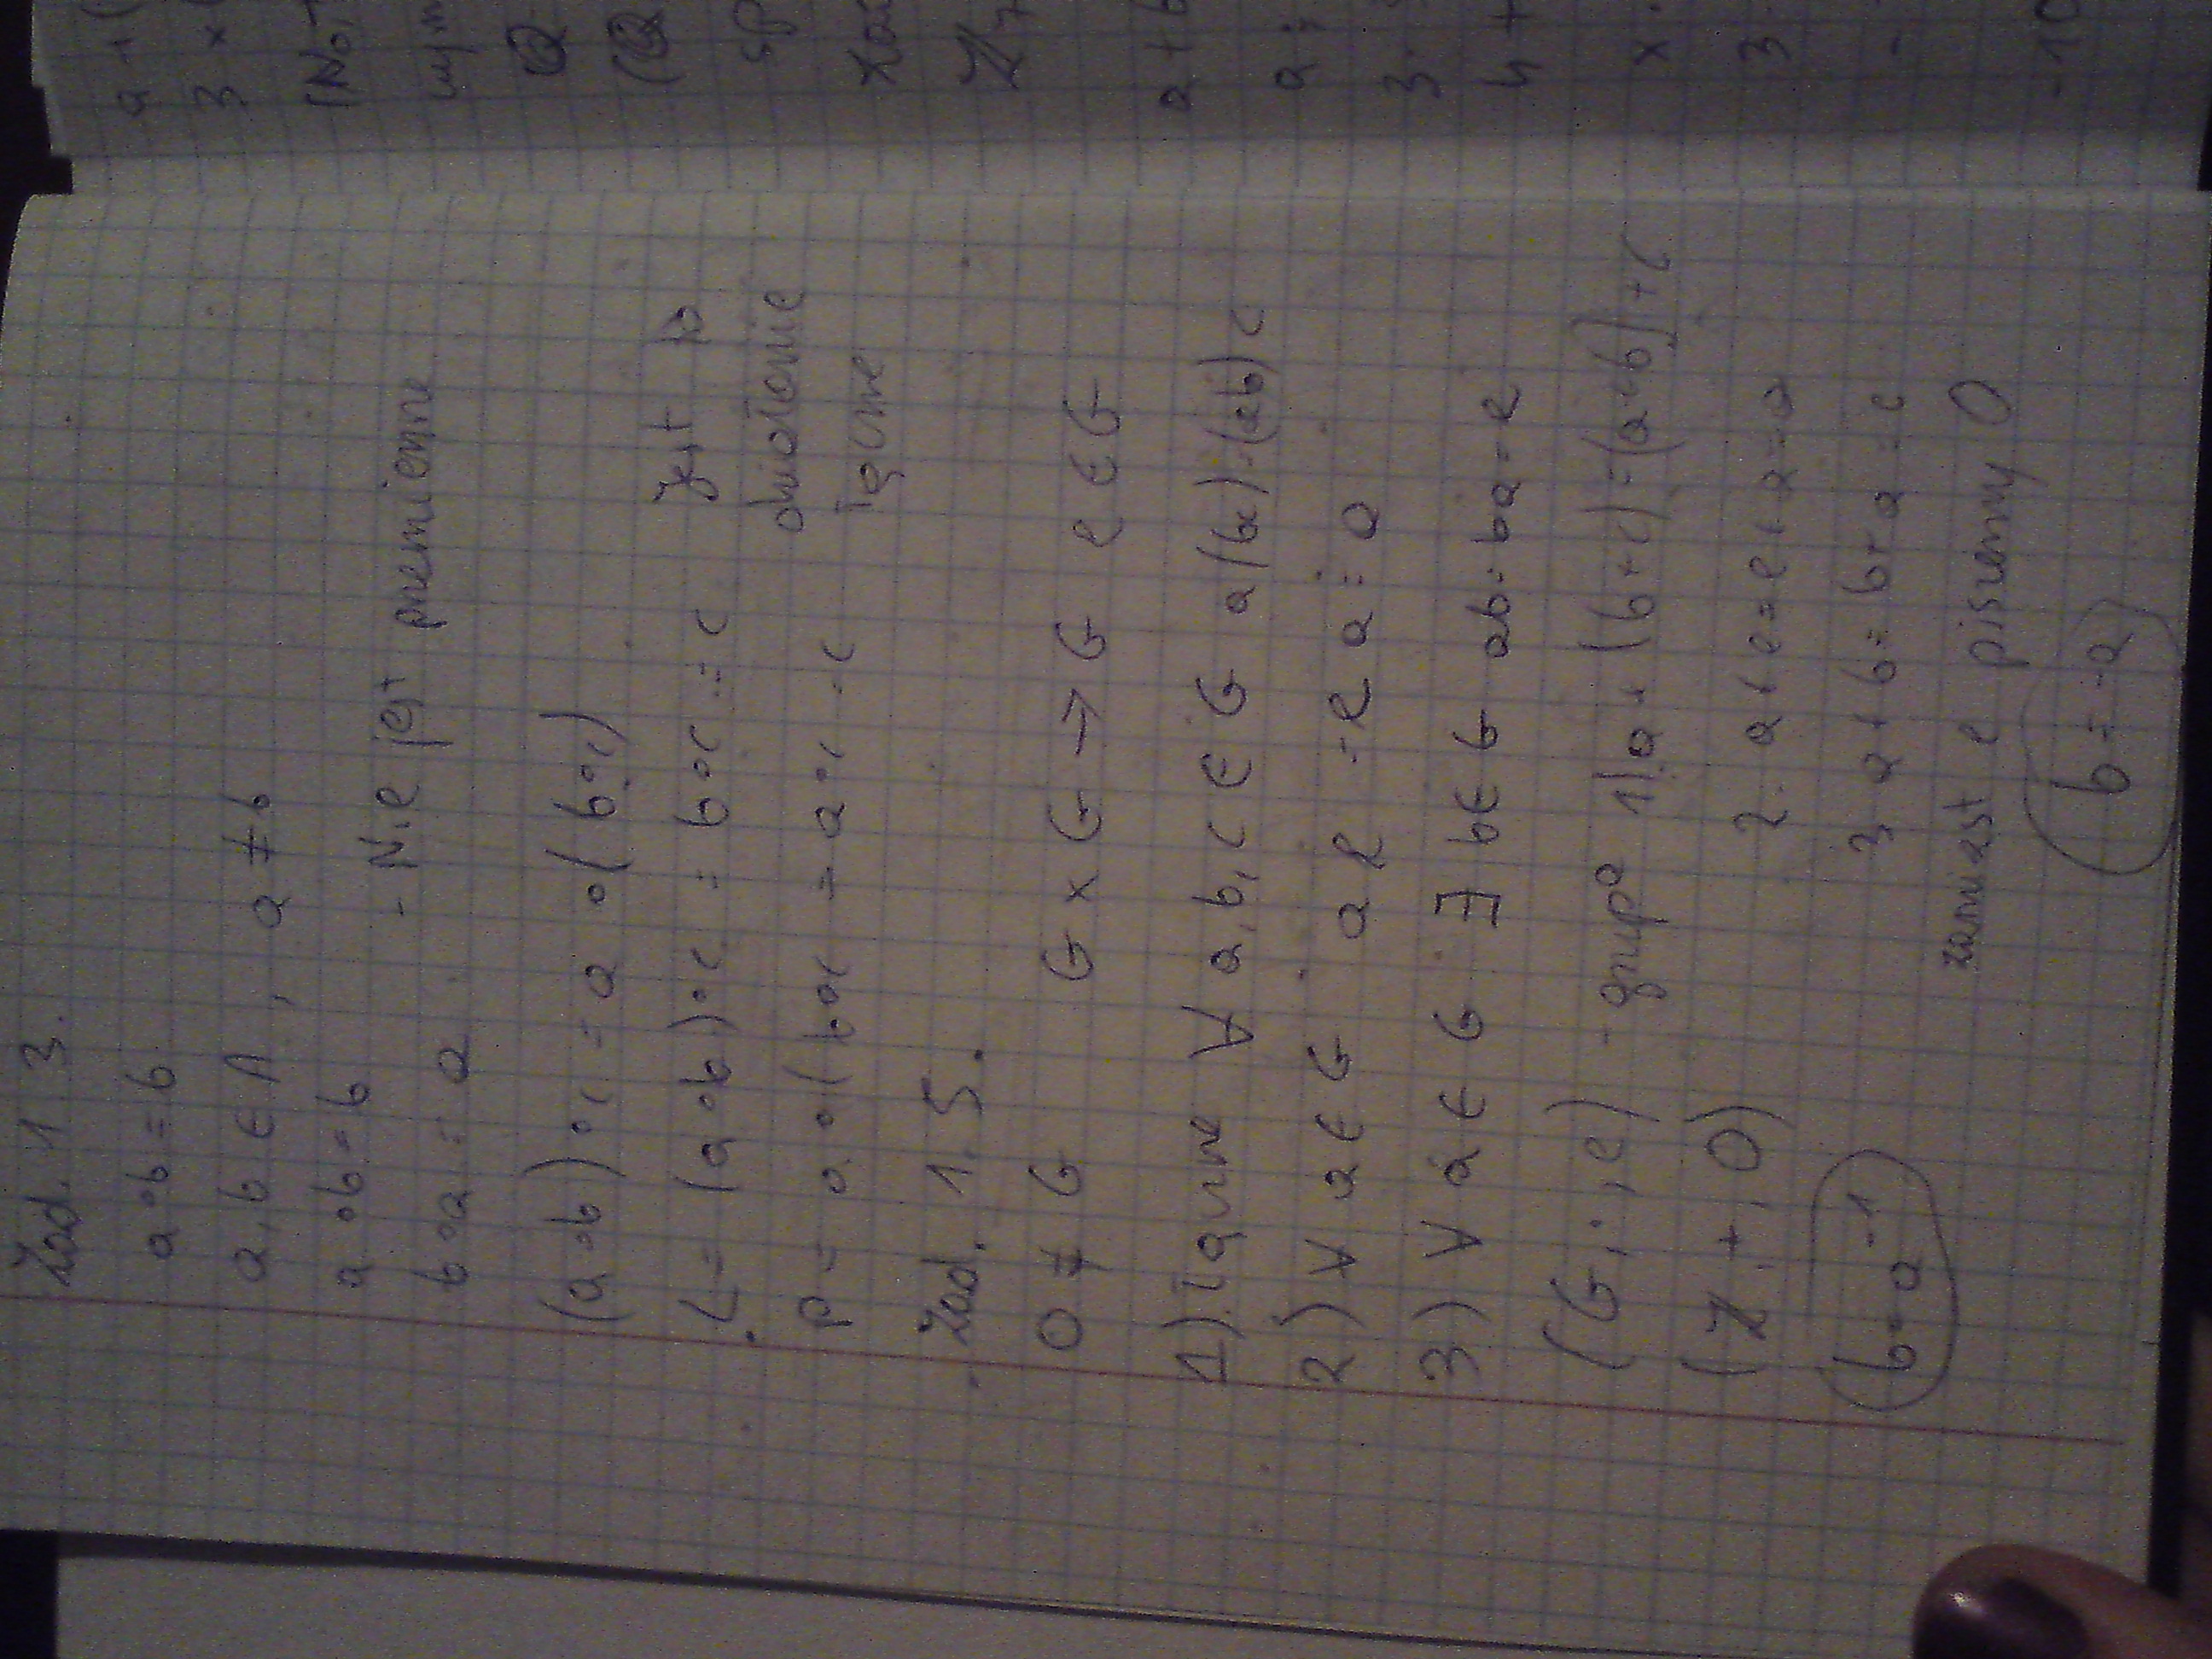 Zad. 1 3.
a∘b = b
a, b ∈ A , a ≠ b
a∘b = b
- Nie jest przemienne
b∘a = a
(a∘b)∘c = a∘(b∘c)
L = (a∘b)∘c = b∘c = c Jest to
P = a∘(b∘c = a∘c = c działanie
łączne
Zad. 1.5.
0 ≠ G G x G → G e ∈ G
1) łączne ∀ a, b, c ∈ G a(bc) = (ab)c
2) ∀ a ∈ G ae = ea = a
3) ∀ a ∈ G ∃ b ∈ G ab = ba = e
(G, ·, e) - grupa 1) a + (b+c) = (a+b)+c
(ℤ, +, 0) 2. a+e = e+a = a
3 a+b = b+a = e
b = a⁻¹
zamiast e piszemy 0
b = -a
a + b
3 ·
4 +
x ·
3 ·
-
-10